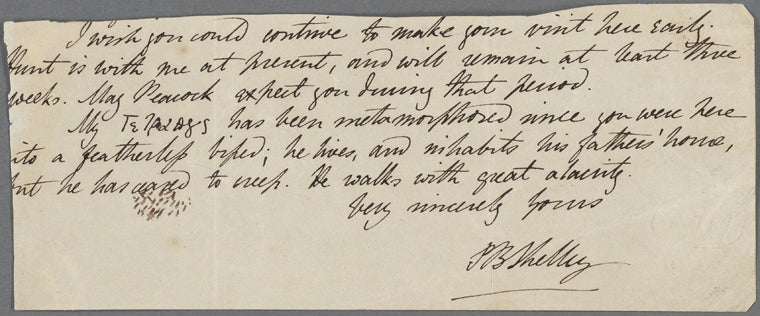 I wish you could contrive to make your visit here early.
Hunt is with me at present, and will remain at least three
weeks. May Peacock expect you during that period.
My Τετραπȣς has been metamorphosed since you were here
into a featherless biped; he lives, and inhabits his fathers' house,
but he has ceased to creep. He walks with great alacrity.
Very sincerely yours
PBShelley